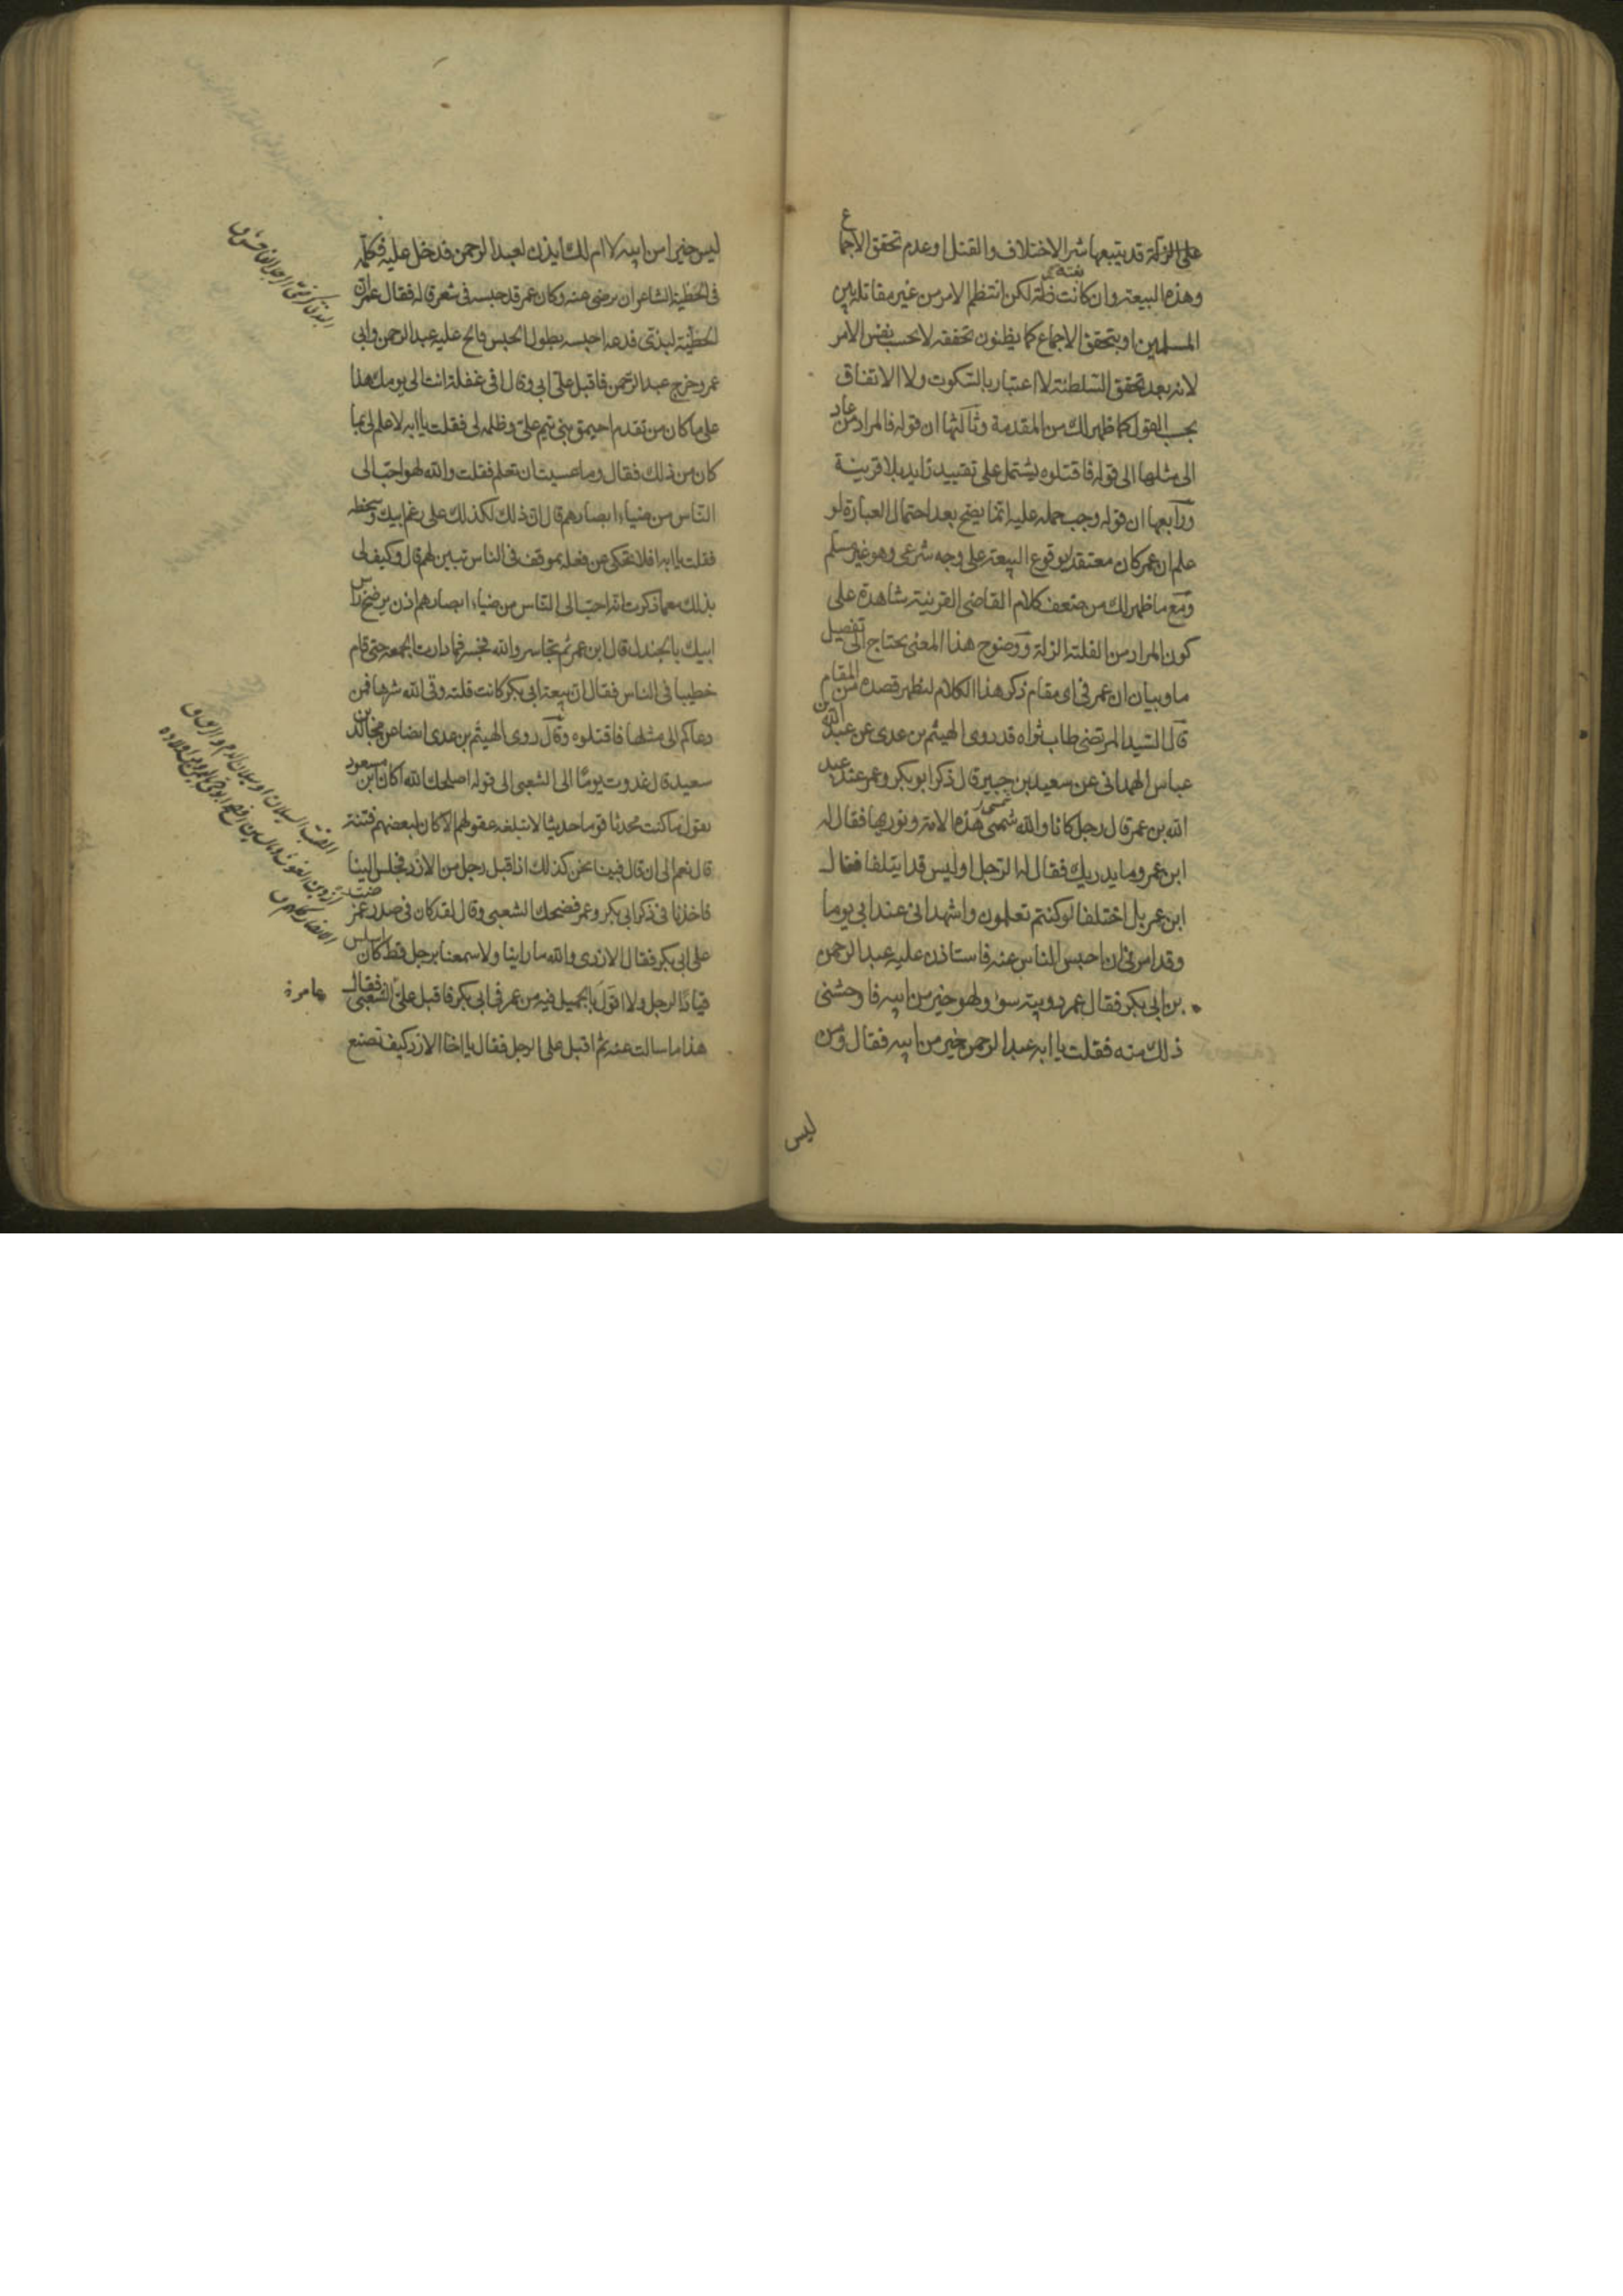 على الزلة قد يتبعها شر الاختلاف والقتل او عدم تحقق الاجماع
وهذه البيعة وان كانت فلتة لكن انتظم الامر من غير مقاتلة بين
المسلمين او بتحقق الاجماع كما يظنون تحققه لا بحسب نفس الامر
لانه بعد تحقق السلطنة لا اعتبار بالسكوت ولا الاتفاق
بحسب القول كما ظهر لك من المقدمة وثالثها ان قوله فالمراد من عاد
الى مثلها الى قوله فاقتلوه يشتمل على تقييد زايد بلا قرينة
ورابعها ان قوله وجب حمله عليه انما يصح بعد احتمال العبارة لو
علم ان عمر كان معتقد الوقوع البيعة على وجه شرعى وهو غير مسلم
ومع ما ظهر لك من ضعف كلام القاضى القرينة شاهدة على
كون المراد من الفلتة الزلة ووضوح هذا المعنى يحتاج الى تفصيل
ما وبيان ان عمر فى اى مقام ذكر هذا الكلام ليظهر قصده من المقام
قال السيد المرتضى طاب ثراه قد روى الهيثم بن عدى عن عبد الله بن
عباس الهمدانى عن سعيد بن جبير قال ذكر ابو بكر وعمر عند عبد
الله بن عمر قال رجل كانا والله شمسى هذه الامة ونوريها فقال له
ابن عمر وما يدريك فقال له الرجل اوليس قد ايتلفا فقال
ابن عمر بل اختلفا لو كنتم تعلمون واشهد انى عند ابى يوما
وقد امرنى ان احبس الناس عنه فاستاذن عليه عبد الرحمن
بن ابى بكر فقال عمر دويبة سوء ولهو خير من ابيه فاوحشنى
ذلك منه فقلت يا ابه عبد الرحمن خير من ابيه فقال ومن
ليس
ليس خيرا من ابيه لا ام لك ايذن لعبد الرحمن فدخل عليه فكلمه
فى الحطيئة الشاعر ان يرضى عنه وكان عمر قد حبسه فى شعر قاله فقال عمر ان
الحطيئة لبذى فدعه احبسه بطول الحبس فالح عليه عبد الرحمن وابى
عمر وخرج عبد الرحمن فاقبل على ابى وقال افى غفلة انت الى يومك هذا
على ما كان من تقدم احيمق بنى تيم على وظلمه لى فقلت يا ابه لا علم لى بما
كان من ذلك فقال وما عسيت ان تعلم فقلت والله لهو احب الى
الناس من ضياء ابصارهم قال ان ذلك لكذلك على رغم ابيك وسخطه
فقلت يا ابه افلا تحكى عن فعله بموقف فى الناس تبين لهم قال وكيف لى
بذلك مع ما ذكرت انه احب الى الناس من ضياء ابصارهم اذن يرضخ راس
ابيك بالجندل قال ابن عمر ثم تجاسر والله فجسر فما دارت الجمعة حتى قام
خطيبا فى الناس فقال ان بيعة ابى بكر كانت فلتة وقى الله شرها فمن
دعاكم الى مثلها فاقتلوه وقال روى الهيثم بن عدى ايضا عن مجالد بن
سعيد قال غدوت يوما الى الشعبى الى قوله اصلحك الله اكان ابن مسعود
يقول ما كنت محدثا قوما حديثا لا تبلغه عقولهم الا كان لبعضهم فتنة
قال نعم الى ان قال فبينا نحن كذلك اذ اقبل رجل من الازد فجلس الينا
فاخذنا فى ذكر ابى بكر وعمر فضحك الشعبى وقال لقد كان فى صدر عمر ضب
على ابى بكر فقال الازدى والله ما راينا ولا سمعنا برجل قط كان اسلس
قيادا لرجل ولا اقول بالجميل فيه من عمر فى ابى بكر فاقبل على الشعبى فقال
هذا ما سالت عنه ثم اقبل على الرجل فقال يا اخا الازد كيف تصنع